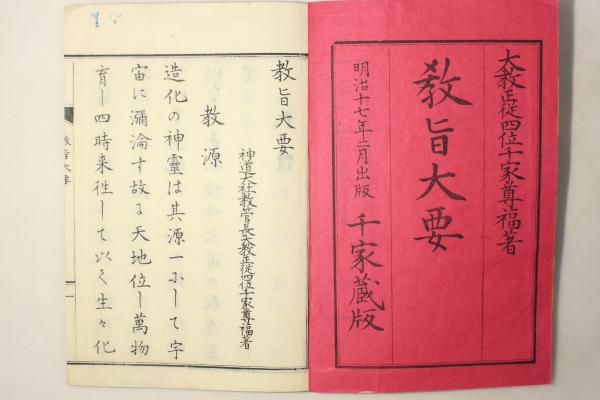 大教正従四位千家尊福著
教旨大要
明治十七年二月出版 千家蔵版
教旨大要
神道大社教管長大教正従四位千家尊福著
教源
造化の神靈は其源一にして宇
宙に瀰淪す故に天地位し萬物
育し四時来往して以て生々化
教旨大要
一